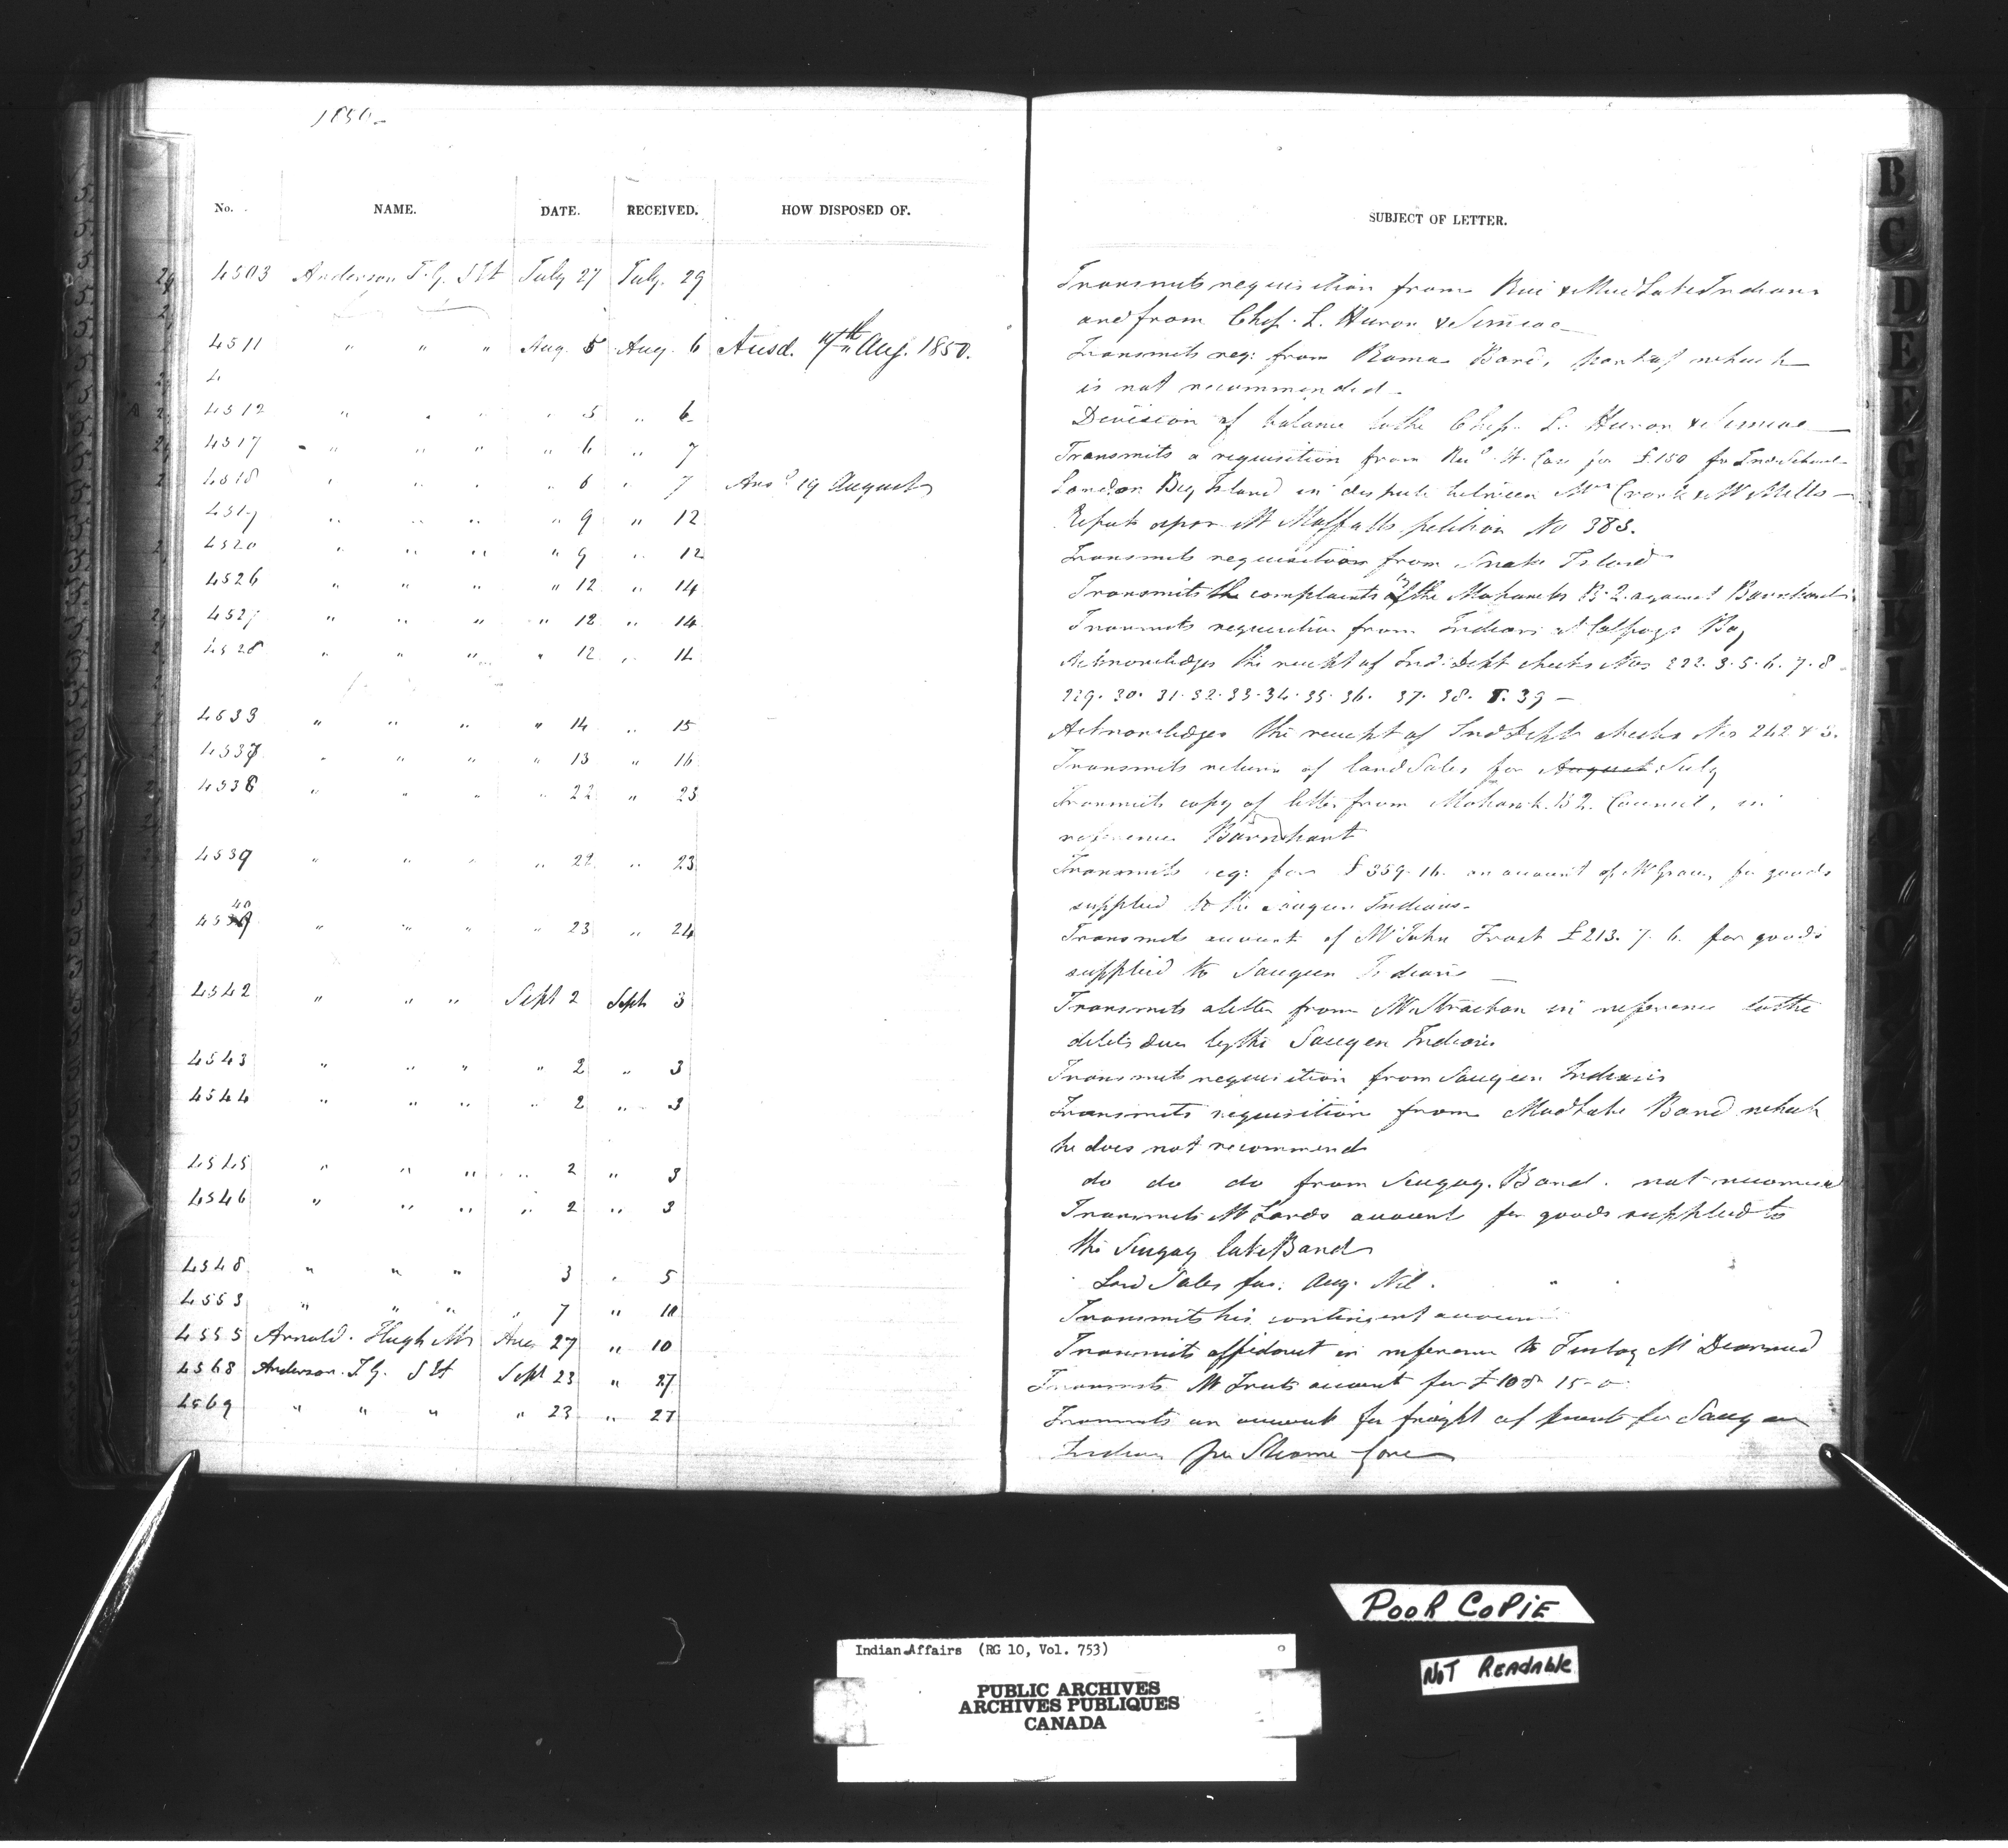 1850
No. NAME. DATE. RECEIVED. HOW DISPOSED OF. SUBJECT OF LETTER.
4503 Anderson T. G. S It July 27 July. 29 Transmits requisition from Rice & Mud Lake Indians
and from Chip. L. Huron & Simcoe
4511 " " " Aug. 5 Aug. 6 Ansd. 17th Aug. 1850. Transmits req: from Rama Band, part of which
is not recommended
4512 " " " " 5 " 6 Division of balance to the Chip. L. Huron & Simcoe
4517 " " " " 6 " 7 Transmits a requisition from Revd W. Case for £150 for Ind. School
4518 " " " " 6 " 7 Ansd 19 August Big Island in dispute between & Mr Mills
4519 " " " " 9 " 12 upon Mr petition No 383.
4520 " " " " 9 " 12 Transmits requisition from Snake Island
4526 " " " " 12 " 14 Transmits the complaints of the Mohawks B. Q. against Barnhart
4527 " " " " 12 " 14 Transmits requisition from Indians at Colpoys Bay
4528 " " " " 12 " 14 Acknowledges the receipt of Ind: Dept checks Nos 222. 3. 5. 6. 7. 8
229. 30. 31. 32. 33. 34. 35. 36. 37. 38. & 39
4533 " " " " 14 " 15 Acknowledges the receipt of Ind Dept checks Nos 242 & 3.
4537 " " " " 13 " 16 Transmits return of land Sales for August July
4538 " " " " 22 " 23 Transmits copy of letter from Mohawk B. Q. Council, in
reference Barnhart
4539 " " " " 22 " 23 Transmits req: for £359. 16. on account of for goods
supplied to the Saugeen Indians
40
4539 " " " " 23 " 24 Transmits account of Mr John Frost £213. 7. 6. for goods
supplied to Saugeen Indians
4542 " " " Sept 2 Sept 3 Transmits a letter from Mr Strachan in reference to the
debts due by the Saugeen Indians
4543 " " " " 2 " 3 Transmits requisition from Saugeen Indians
4544 " " " " 2 " 3 Transmits requisition from Mud Lake Band which
he does not recommend
4545 " " " " 2 " 3 do do do from Scugog. Band. not recomend
4546 " " " " 2 " 3 Transmits Mr account for goods supplied to
the Scugog lake Band
4548 " " " 3 " 5 Land Sales for. Aug. Nil.
4553 " " " " 7 " 10 Transmits his contingent account
4555 Arnold. Hugh Mr Aug 27 " 10 Transmits affidavit in reference to Finlay McDiarmid
4568 Anderson. T. G. S It Sept 23 " 27 Transmits Mr account for £108 15-0
4569 " " " " 23 " 27 Transmits an account for freight of presents for Saugeen
Indians
B
C
D
E
F
G
H
I
K
POOR COPIE
NOT READABLE
Indian Affairs (RG 10, Vol. 753)
PUBLIC ARCHIVES
ARCHIVES PUBLIQUES
CANADA